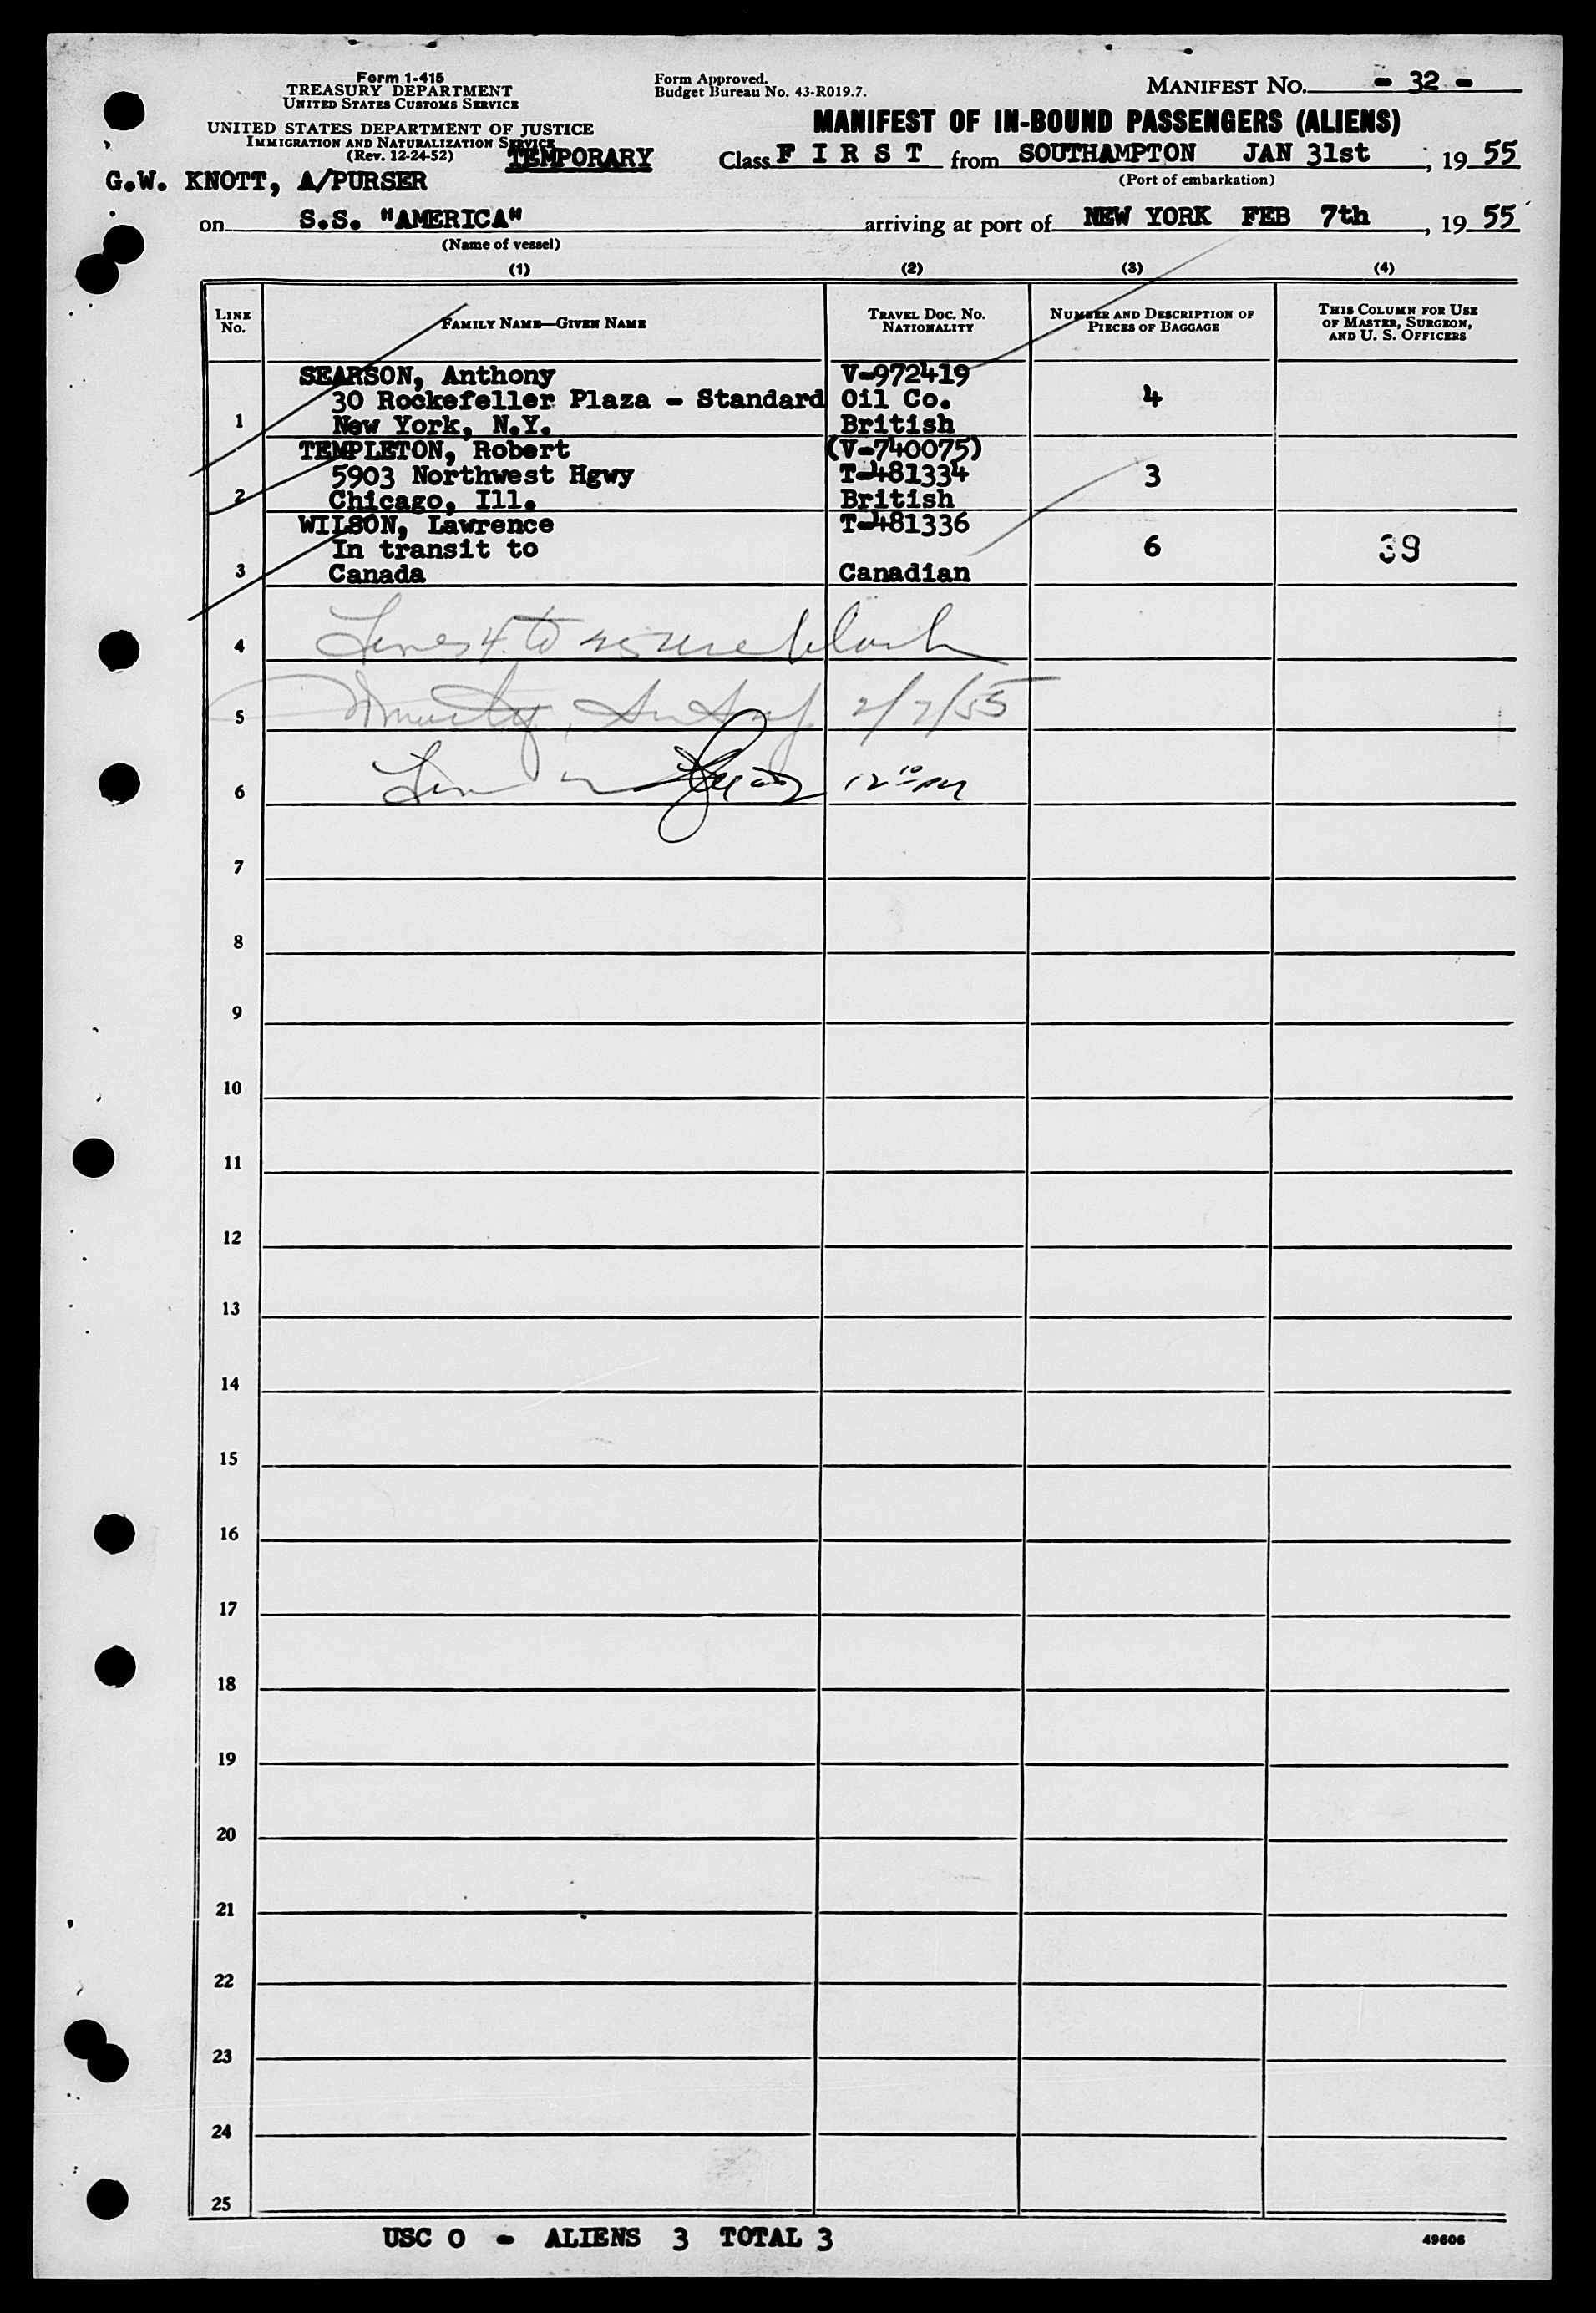 Form 1-415
TREASURY DEPARTMENT
UNITED STATES CUSTOMS SERVICE
UNITED STATES DEPARTMENT OF JUSTICE
IMMIGRATION AND NATURALIZATION SERVICE
(Rev. 12-24-52)
TEMPORARY
Form Approved.
Budget Bureau No. 43-R019.7.
MANIFEST NO. - 32 -
MANIFEST OF IN-BOUND PASSENGERS (ALIENS)
Class F I R S T from SOUTHAMPTON JAN 31st, 19 55
(Port of embarkation)
G.W. KNOTT, A/PURSER
on S.S. "AMERICA" arriving at port of NEW YORK FEB 7th, 19 55
(Name of vessel)
(1) (2) (3) (4)
LINE NO. FAMILY NAME—GIVEN NAME TRAVEL DOC. NO. NATIONALITY NUMBER AND DESCRIPTION OF PIECES OF BAGGAGE THIS COLUMN FOR USE OF MASTER, SURGEON, AND U. S. OFFICERS
SEARSON, Anthony V-972419
30 Rockefeller Plaza - Standard Oil Co. 4
1 New York, N.Y. British
TEMPLETON, Robert (V-740075)
5903 Northwest Hgwy T-481334 3
2 Chicago, Ill. British
WILSON, Lawrence T-481336
In transit to 6 39
3 Canada Canadian
4 Lines 4 to 25 are blank
5 2/7/55
6 12 10 PM
7
8
9
10
11
12
13
14
15
16
17
18
19
20
21
22
23
24
25
USC 0 - ALIENS 3 TOTAL 3
49606